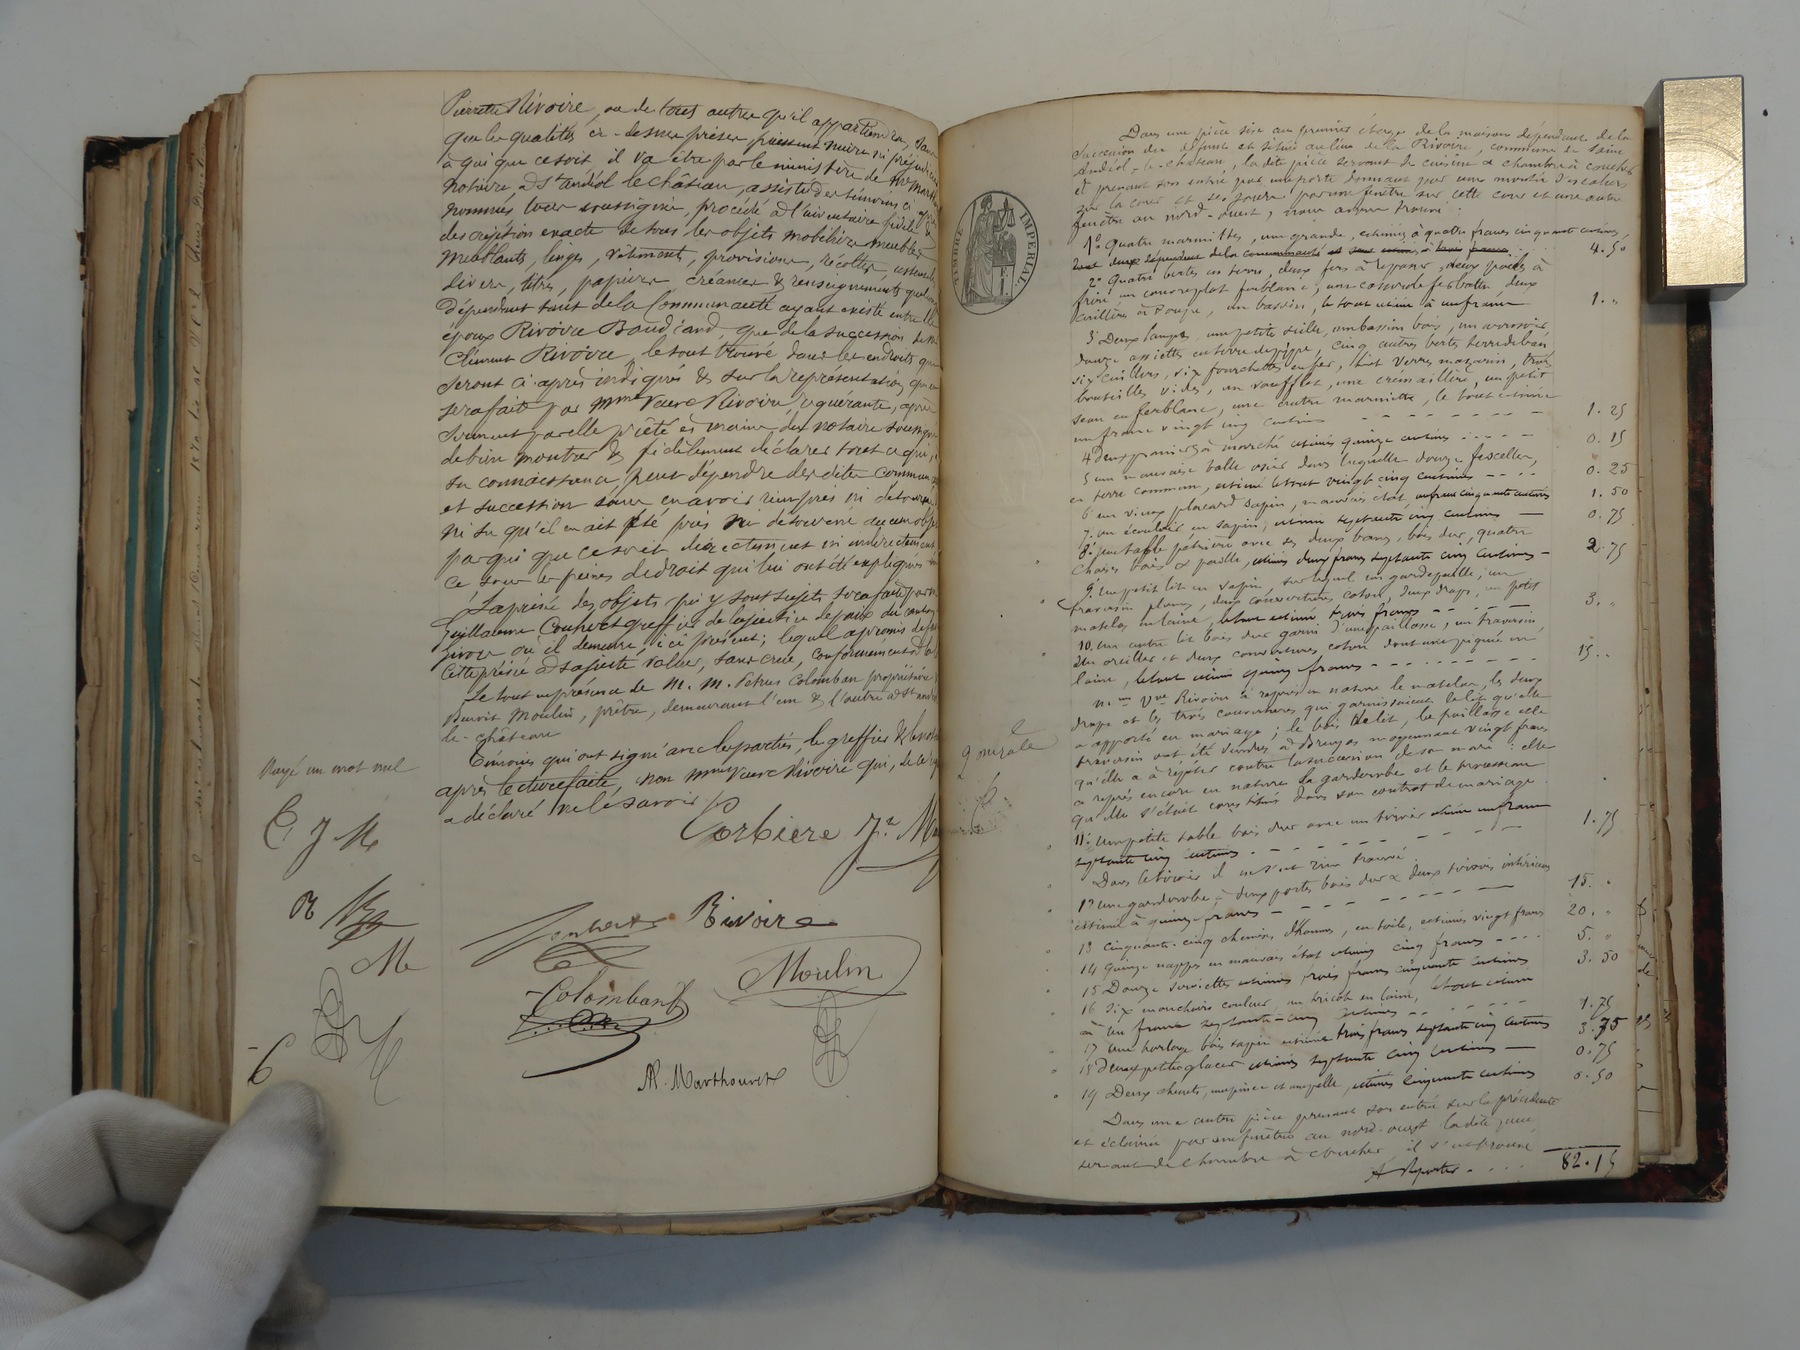 Pierrette Rivoire, ou de tous autres qu'il appartiendra, sans
que les qualités ci-dessus prises puissent nuire ni préjudicier
à qui que ce soit, il va être par le ministère de Me
notaire, à St andéol le château, assisté des témoins ci après
nommés tous soussignés, procédé à l'inventaire fidèle &
description exacte de tous les objets mobiliers meubles
meublants, linges, vêtements, provisions, récoltes,
divers, titres, papiers, créances & renseignements
dépendant tant de la Communauté ayant existé entre les
époux Rivoire que de la succession de
Clément Rivoire, le tout trouvé dans les endroits qui
seront ci après indiqués & sur la représentation qui en
sera faite par Mme Veuve Rivoire, requérante, après
serment par elle prêté ès mains du notaire soussigné
de bien montrer & fidèlement déclarer tout ce qui, à
sa connaissance, peut dépendre des dites communauté
et succession sans en avoir rien pris ni détourné
ni su qu'il en ait été pris ni détourné aucun objet
par qui que ce soit directement ni indirectement
ce sous les peines de droit qui lui ont été expliquées
La prisée des objets qui y sont sujets sera faite par
Guillaume greffier de la justice de paix du canton
Givors où il demeure, ici présent; lequel a promis de faire
cette prisée à sa juste valeur, sans crue, conformément
Le tout en présence de M. M. Petrus Colomban propriétaire
Benoit Moulin, prêtre, demeurant l'un & l'autre à St andéol
le-château
Témoins qui ont signé avec les parties, le greffier & le notaire
après lecture faite, non Mme Veuve Rivoire qui, de ce
a déclaré ne le savoir
Rayé un mot nul
Corbiere
Rivoire
Colomban
Moulin
TIMBRE IMPERIAL
Dans une pièce sise au premier étage de la maison dépendant de la
succession du défunt et située au lieu de la Rivoire, commune de Saint
Andéol-le-château, la dite pièce servant de cuisine & chambre à coucher
et prenant son entrée par une porte donnant par une montée d'escaliers
sur la cour et ses jours par une fenêtre sur cette cour et une autre
fenêtre au nord-ouest, nous avons trouvé:
1° Quatre marmittes, une grande, estimés à quatre francs cinquante centimes, 4.50
2° Quatre bertes en terre, deux fers à repasser, deux poëles à
frire, un couvreplat ferblanc, une casserole ferbattu deux
cuillères à soupe, un bassin, le tout estimé à un franc 1. "
3° Deux lampes, une petite seille, un bassin bois, un arrosoir,
douze assiettes en terre de pippe, cinq autres bertes terre de ban
six cuillers, six fourchettes en fer, huit verres mazarin, trois
bouteilles vides, un soufflet, une cremaillère, un petit
seau en ferblanc, une autre marmitte, le tout estimé
un franc vingt cinq centimes 1.25
4 deux paniers à marché estimés quinze centimes 0.15
5 une mauvaise balle osier dans laquelle douze fescelles,
en terre commun, estimé le tout vingt cinq centimes 0.25
6 un vieux placard sapin, mauvais état un franc cinquante centimes 1.50
7. un écouloir en sapin, estimé septante cinq centimes 0.75
8° une table pétrière avec ses deux bancs, bois dur, quatre
chaises bois & paille, estimés deux francs septante cinq centimes 2.75
9° un petit lit en sapin sur lequel un gardepaille, un
traversin plumes, deux couvertures coton, deux draps, un petit
matelas en laine, le tout estimé trois francs 3. "
10. un autre lit bois dur garni d'une paillasse, un traversin,
un oreiller et deux couvertures coton dont une piquée en
laine, le tout estimé quinze francs 15. "
Mme Vve Rivoire a repris en nature le matelas, les deux
draps et les trois couvertures qui garnissaient le lit qu'elle
a apporté en mariage; le bois de lit, la paillasse et le
traversin ont été vendus à Bruyas moyennant vingt francs
qu'elle a à répéter contre la succession de son mari; elle
a repris encore en nature la garderobe et le trousseau
qu'elle s'était constitués dans son contrat de mariage.
11° une petite table bois dur avec un tiroir estimé un franc
septante cinq centimes 1.75
Dans le tiroir il ne s'est rien trouvé.
12 une garderobe à deux portes bois dur & deux tiroirs intérieurs
estimé à quinze francs 15. "
13 cinquante-cinq chemises d'homme, en toile, estimés vingt francs 20. "
14 quinze nappes en mauvais état estimés cinq francs 5. "
15 Douze serviettes estimées trois francs cinquante centimes 3.50
16 six mouchoirs couleur, un tricot en laine, le tout estimé
à un franc septante-cinq centimes 1.75
17 une horloge bois sapin estimé trois francs septante cinq centimes 3.75
18 deux petites glaces estimées septante cinq centimes 0.75
19 Deux chenets, une pince et une pelle, estimés cinquante centimes 0.50
Dans une autre pièce prenant son entrée sur la précédente
et éclairée par une fenêtre au nord-ouest la dite pièce
servant de chambre à coucher il s'est trouvé
A Reporter 82.15